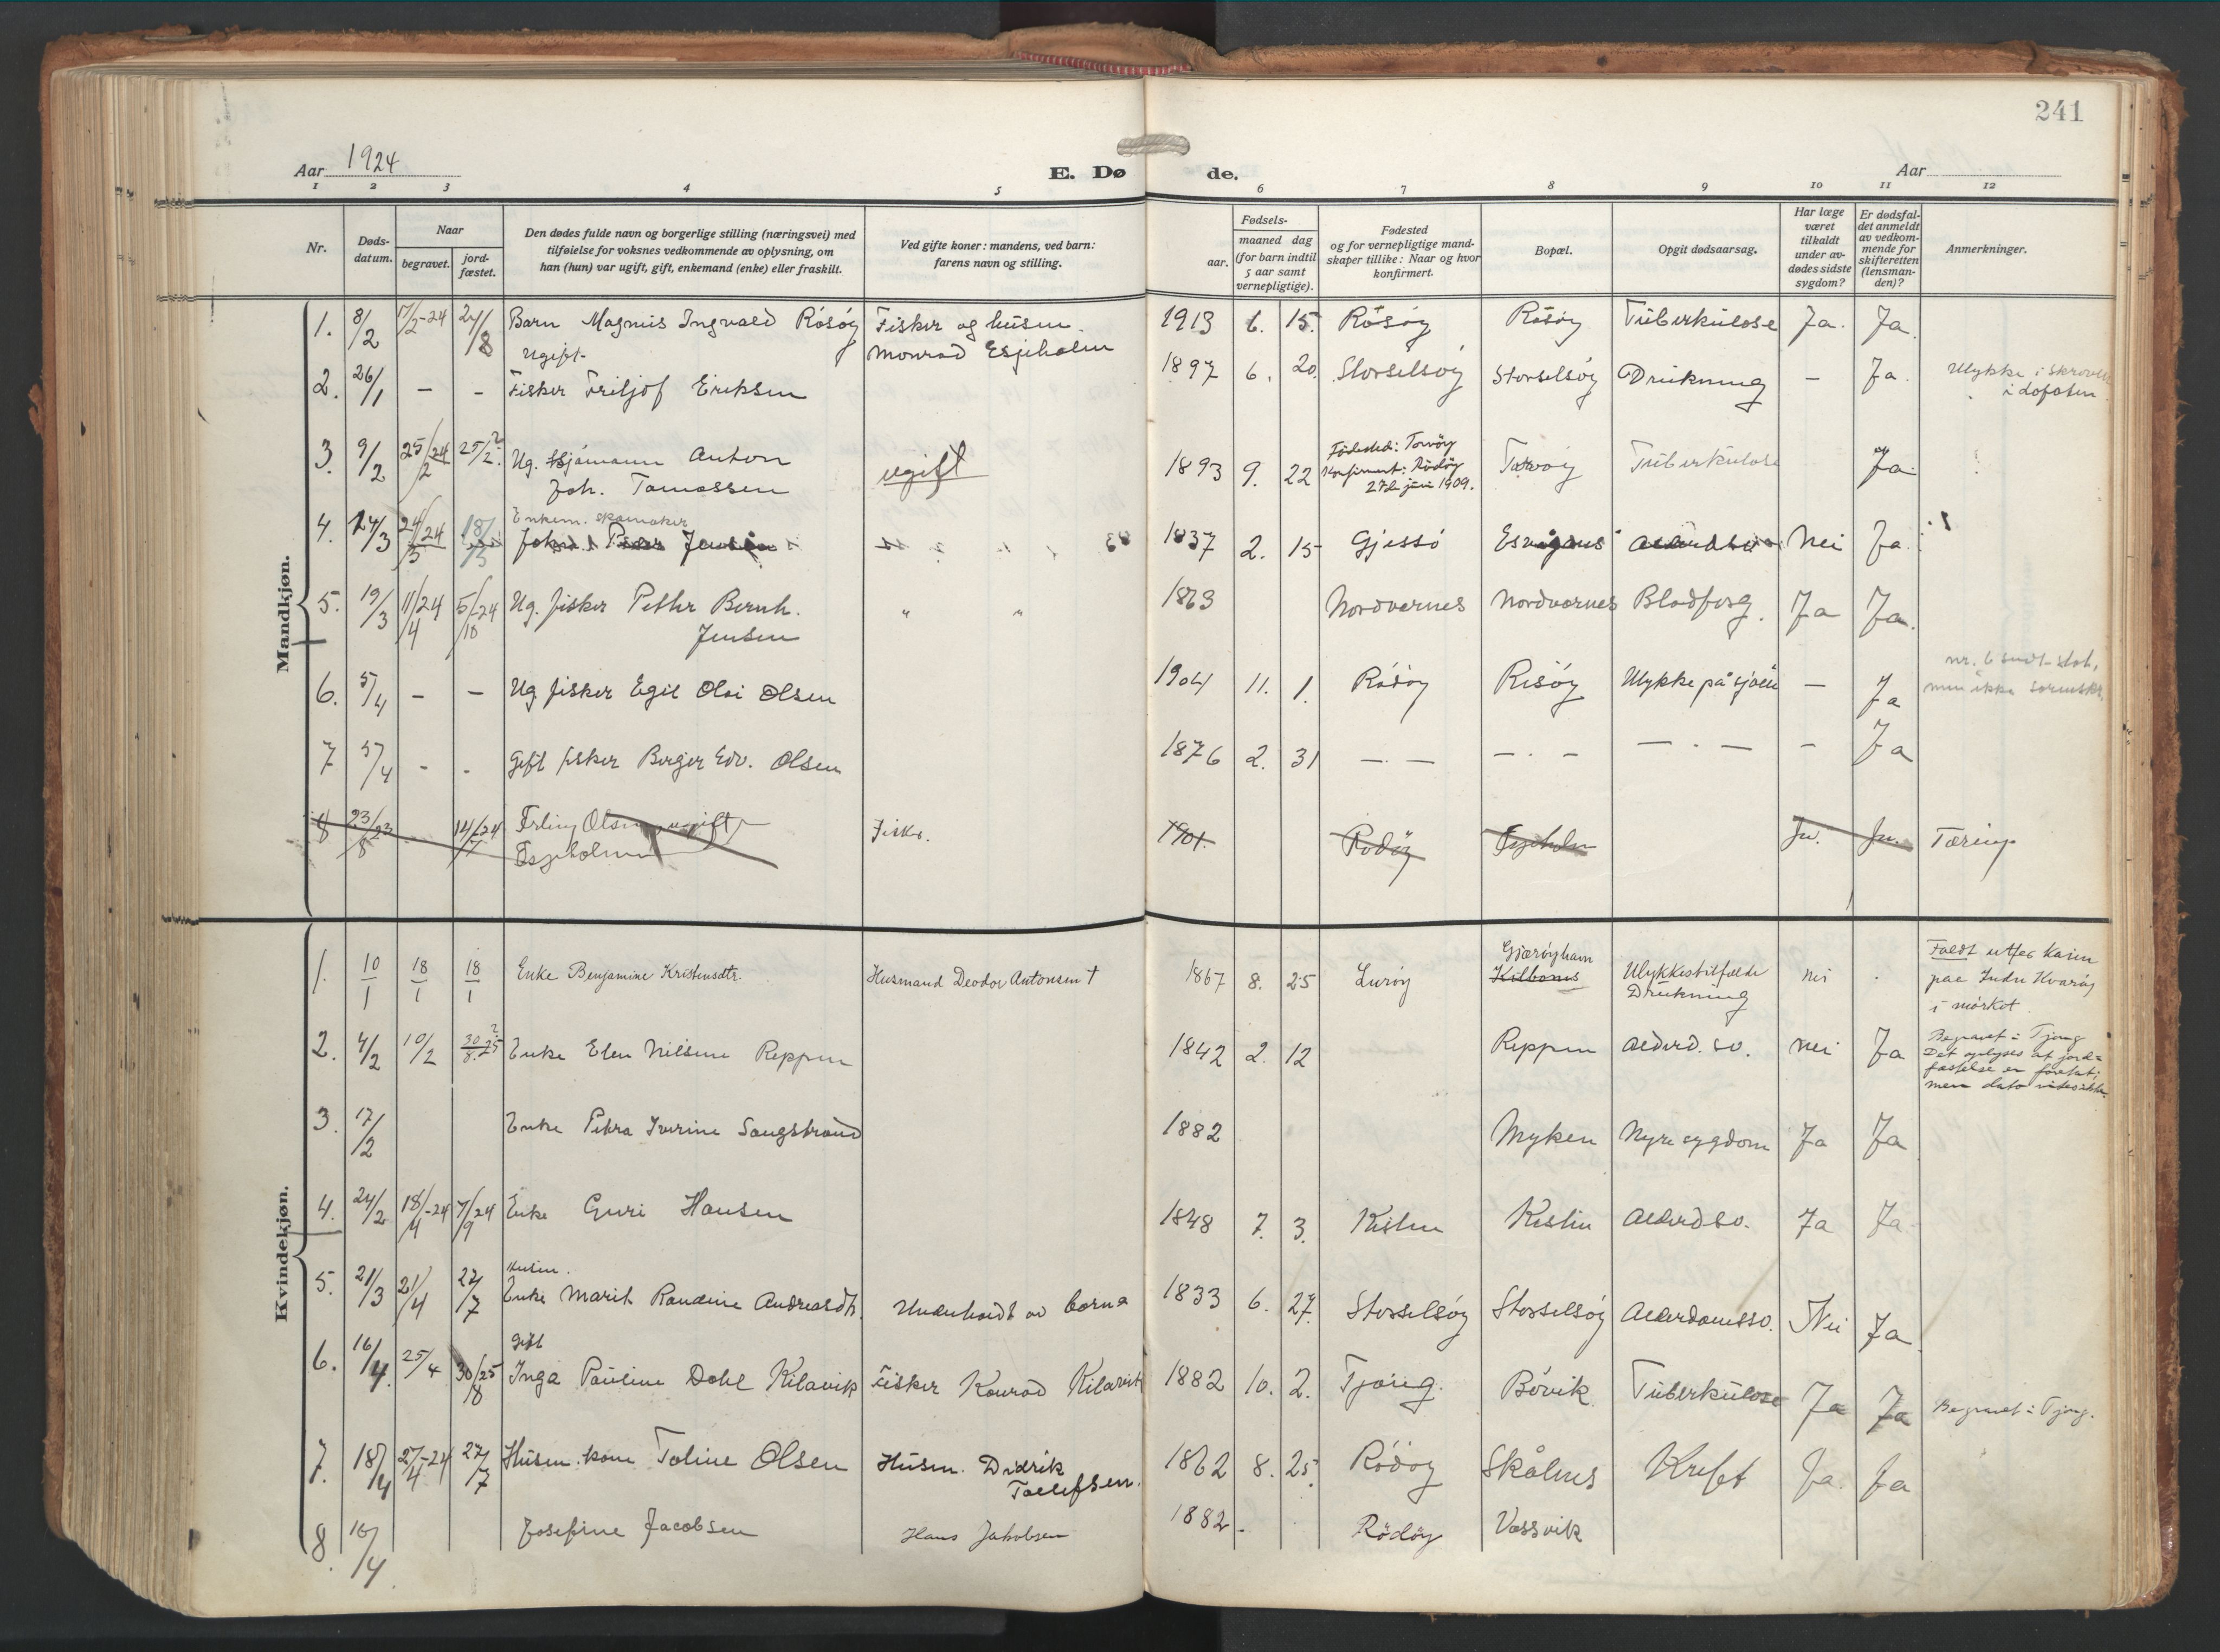 241
Aar 1924
E. Dø
de.
Aar
1 2 3 4 5 6 7 8 9 10 11 12
Nr.
Døds-
datum.
Naar
begravet.
jord-
fæstet.
Den dødes fulde navn og borgerlige stilling (næringsvei) med
tilføielse for voksnes vedkommende av oplysning, om
han (hun) var ugift, gift, enkemand (enke) eller fraskilt.
Ved gifte koner: mandens, ved barn:
farens navn og stilling.
Fødsels-
aar.
maaned dag
(for barn indtil
5 aar samt
vernepligtige).
Fødested
og for vernepligtige mand-
skaper tillike: Naar og hvor
konfirmert.
Bopæl.
Opgit dødsaarsag.
Har læge
været
tilkaldt
under av-
dødes sidste
sygdom?
Er dødsfal-
det anmeldt
av vedkom-
mende for
skifteretten
(lensman-
den)?
Anmerkninger.
Mandkjøn.
1. 8/2 17/2-24 24/8 Barn Magnus Ingvald Rösöy Fisker og husm. 1913 6. 15. Rösöy Rösöy Tuberkulose Ja. Ja.
Monrad Esjeholm
Ugift
2. 26/1 – – Fisker Fritjof Eriksen 1897 6. 20. Storselsöy Storselsöy Drukning – Ja. Ulykke i
i Lofoten
3. 9/2 25/2 24 25/2 ? Ug. sjömann Anton ugift 1893 9. 22 Födested: Tarvöy Tarvöy Tuberkulose Ja.
Joh. Tomassen
Konfirmert: Rödöy
27de juni 1909.
4. 14/3 24/3 24 18/3 Enkem. skomaker
Johan Jensen 1837 2. 15 Gjessö Nei Ja.
5. 19/3 11/4 24 5/10 24 Ug. fisker Petter Bernh. " " 1863 Nordvernes Nordvernes Blodforg. Ja Ja.
Jensen
6. 5/4 – – Ug fisker Egil Olai Olsen 1904 11. 1. Rödöy Risöy Ulykke på sjöen – Ja
nr. 6
men ikke
7 5/4 - - Gift fisker Berger Edv. Olsen 1876 2. 31 –.– –.– –.– – Ja
8 23/8 23 14/7-24 Erling Olsen ugift Fisker. 1901. Rödöy Esjeholm Ja. Ja. Tæring
Esjeholmen
Kvindekjøn.
1. 10/1 18/1 18/1 Enke Benjamine Kristensdtr. Husmand Deodor Antonsen † 1867 8. 25 Luröy Gjæröyhavn
Kilbones Ulykkestilfælde
Drukning nei . Faldt utfor kaien
paa Indre Kvaröy
i mörket.
2. 4/2 10/2 30/8.25 ? Enke Elen Nilsine Reppen 1842 2. 12 Reppen Alderd. sv. nei Ja Begravet i Tjong
Det oplyses at jord=
fæstelse er foretat;
men dato vites ikke.
3. 17/2 Enke Petra Iverine Sangstrand 1882 Myken Nyresygdom Ja Ja
4. 24/2 18/4-24 7/9 24 Enke Guri Hansen 1848 7. 3. Kislen Kislin Alderd sv. Ja Ja
5. 21/3 21/4 27/7 Husm.
Enke Marit Randine Andreasdtr. Underholdt av barna 1833 6. 27. Storselsöy Storselsöy Alderdomssv. Nei Ja
6. 16/4 25/4 30/8 25 Gift
Inga Pauline Dahl Kilavik Fisker Konrad Kilavik 1882 10. 2. Tjong. Bövik Tuberkulose Ja Ja Begravet i Tjong.
7. 18/4 27/4-24 27/7 Husm. kone Toline Olsen Husm. Didrik 1862 8. 25. Rödöy Skålnes Kreft Ja. Ja
Tollefsen.
8. 16/4 Josefine Jacobsen Hans Jakobsen 1882 - Rödöy Vassvik